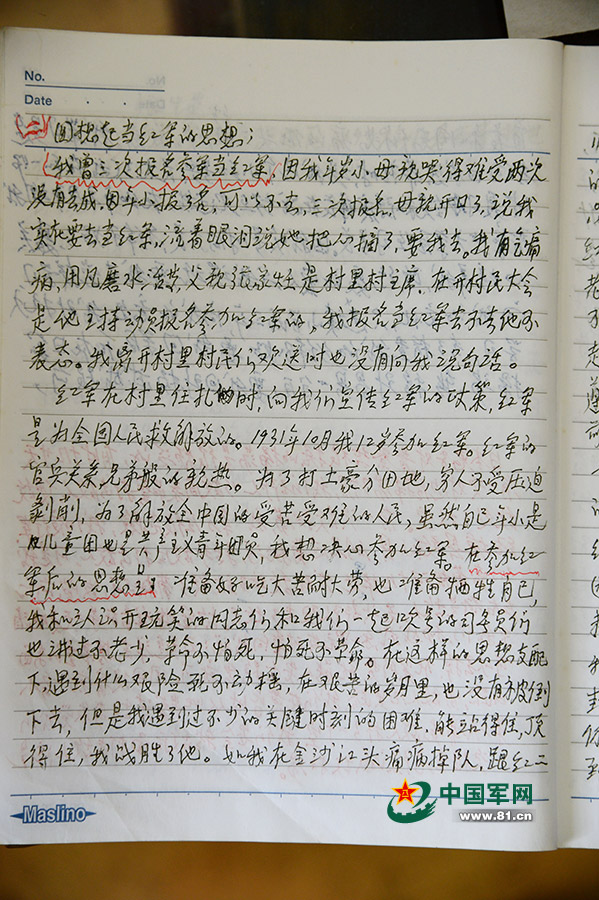 No.
Date
(二) 回想起当红军的思想；
(我曾三次报名参军当红军，因我年岁小母亲哭得难受两次
没有去成，因年小报了名，可以不去，三次报名，母亲开口了，说我
实在要去当红军，流着眼泪说她把心摘了，要我去。我有头痛
病，用凡磨水治，父亲张家灶是村里村主席，在开村民大会
是他主持动员报名参加红军的，我报名当红军去不去他不
表态。我离开村里村民们欢送时也没有向我说句话。
红军在村里住扎时，向我们宣传红军的政策，红军
是为全国人民求解放的。1931年10月我12岁参加红军。红军的
官兵关系兄弟般的亲热。为了打土豪分田地，穷人不受压迫
剥削，为了解放全中国的受苦受难的人民，虽然自己年小是
儿童团也是共产主义青年团员，我想决心参加红军。在参加红
军后的思想上 准备好吃大苦耐大劳，也准备牺牲自己，
我和认识开玩笑的同志们和我们一起吹号的司号员们
也讲过不老少，革命不怕死，怕死不革命。在这样的思想支配
下，遇到什么艰险死不动摇，在艰苦的岁月里，也没有被倒
下去，但是我遇到过不少的关键时刻的困难，能站得住，顶
得住，我战胜了他。如我在金沙江头痛病掉队，跟红二
Maslino
中国军网
www.81.cn